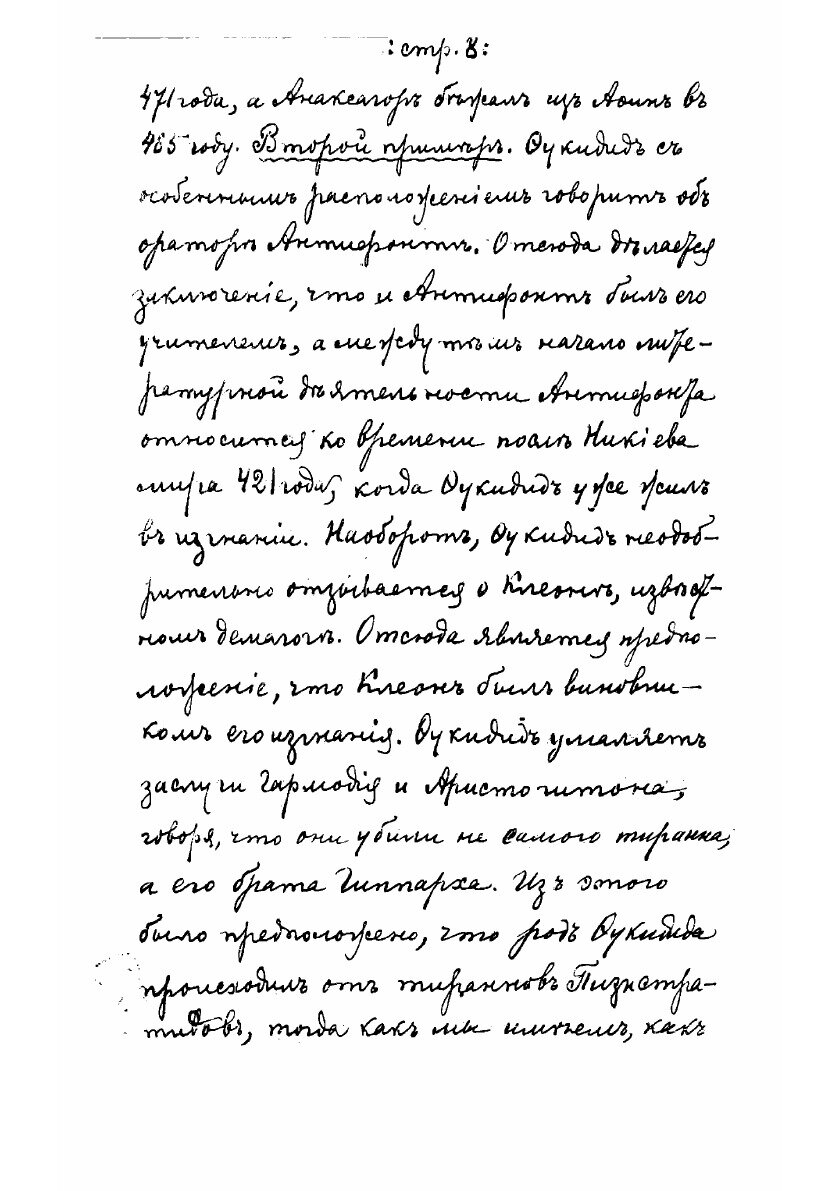 :стр. 8:
471 года, а Анаксагоръ бѣжалъ изъ Аѳинъ въ
465 году. Второй примѣръ. Ѳукидидъ съ
особеннымъ расположеніемъ говоритъ объ
ораторѣ Антифонтѣ. Отсюда дѣлается
заключеніе, что и Антифонтъ былъ его
учителемъ, а между тѣмъ начало лите-
ратурной дѣятельности Антифонта
относится ко времени послѣ Никіева
мира 421 года, когда Ѳукидидъ уже жилъ
въ изгнаніи. Наоборотъ, Ѳукидидъ неодоб-
рительно отзывается о Клеонѣ, извѣст-
номъ демагогѣ. Отсюда является предпо-
ложеніе, что Клеонъ былъ виновни-
комъ его изгнанія. Ѳукидидъ умаляетъ
заслуги Гармодія и Аристогитона,
говоря, что они убили не самого тиранна,
а его брата Гиппарха. Изъ этого
было предположено, что родъ Ѳукидида
происходилъ отъ тиранновъ Пизистра-
тидовъ, тогда какъ мы имѣемъ, какъ